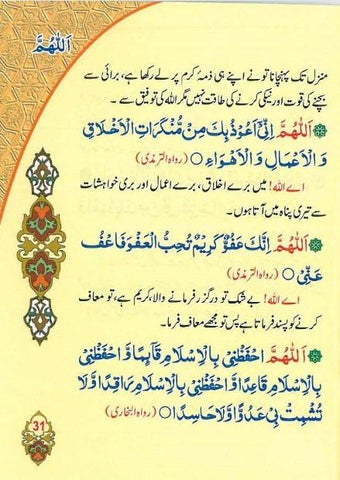 اَللّٰهُمَّ
منزل تک پہنچانا تو نے اپنے ہی ذمۂ کرم پر لے رکھا ہے، برائی سے
بچنے کی قوت اور نیکی کرنے کی طاقت نہیں مگر اللہ کی توفیق سے ۔
اَللّٰهُمَّ اِنِّیْ اَعُوْذُ بِكَ مِنْ مُّنْكَرَاتِ الْاَخْلَاقِ
وَ الْاَعْمَالِ وَ الْاَهْوَاءِ ○ (رواہ الترمذی)
اے اللہ! میں برے اخلاق، برے اعمال اور بری خواہشات
سے تیری پناہ میں آتا ہوں۔
اَللّٰهُمَّ اِنَّكَ عَفُوٌّ كَرِیْمٌ تُحِبُّ الْعَفْوَ فَاعْفُ
عَنِّیْ ○ (رواہ الترمذی)
اے اللہ! بے شک تو درگزر فرمانے والا، کریم ہے، تو معاف
کرنے کو پسند فرماتا ہے پس تو مجھے معاف فرما۔
اَللّٰهُمَّ احْفَظْنِیْ بِالْاِسْلَامِ قَآىِٕمًا وَّ احْفَظْنِیْ
بِالْاِسْلَامِ قَاعِدًا وَّ احْفَظْنِیْ بِالْاِسْلَامِ رَاقِدًا وَّ لَا
تُشْمِتْ بِیْ عَدُوًّا وَّ لَا حَاسِدًا ○ (رواہ البخاری)
31